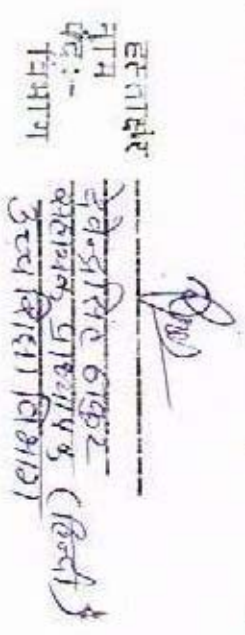 हस्ताक्षर
नाम देवेन्द्रसिंह ठाकुर
पद:- सहायक प्राध्यापक (हिन्दी)
विभाग उच्च शिक्षा विभाग